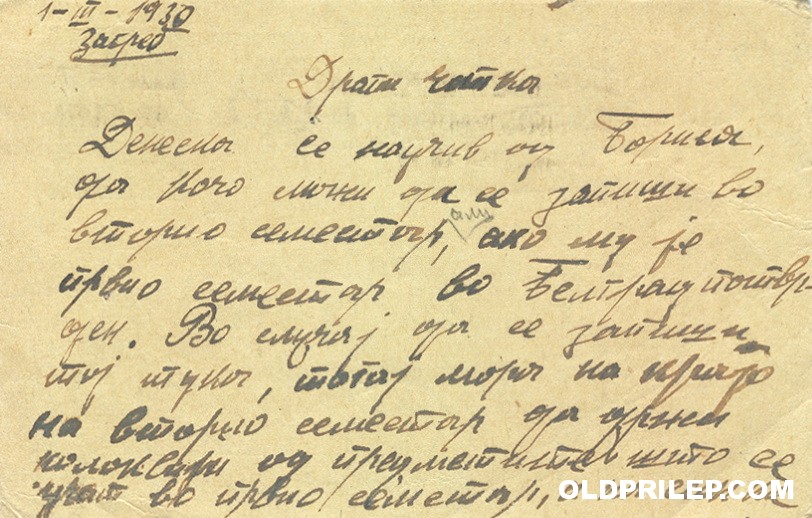 1-III-1930
Загреб
Драги чичка
Денеска се научив од Бориса,
да Кочо можи да се запиши во
вторио семестар, али ако му је
првио семестар во Белград потвр
ден. Во случај да се запиши
тој тука, тогај мора на крајо
на вторио семестар да држи
колоквиј од предметите што се
во првио семестар,
OLDPRILEP.COM